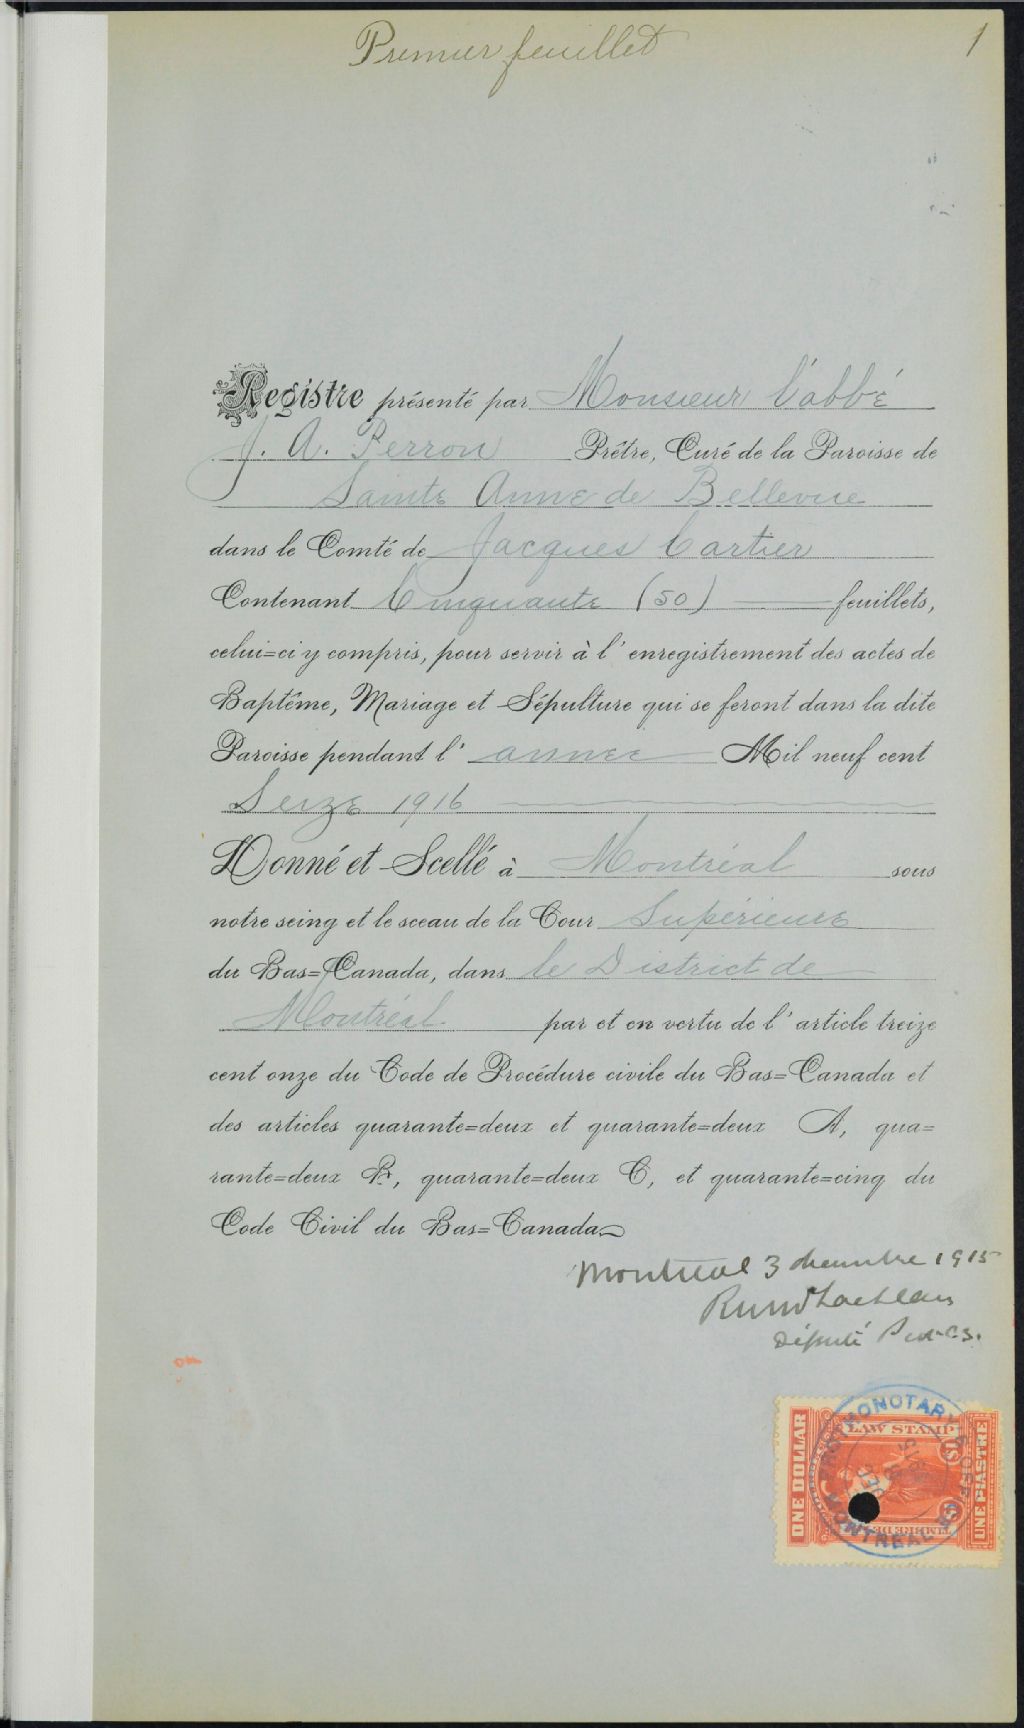 Premier feuillet
1
Registre présenté par Monsieur l'abbé
J. A. Perron Prêtre, Curé de la Paroisse de
Sainte Anne de Bellevue
dans le Comté de Jacques Cartier
Contenant Cinquante (50) feuillets,
celui=ci y compris, pour servir à l'enregistrement des actes de
Baptême, Mariage et Sépulture qui se feront dans la dite
Paroisse pendant l'année Mil neuf cent
Seize 1916
Donné et Scellé à Montréal sous
notre seing et le sceau de la Cour Supérieure
du Bas=Canada, dans le District de
Montréal par et en vertu de l'article treize
cent onze du Code de Procédure civile du Bas=Canada et
des articles quarante=deux et quarante=deux A, qua=
rante=deux B, quarante=deux C, et quarante=cinq du
Code Civil du Bas=Canada
Montreal 3 decembre 1915
Député
ONE DOLLAR
LAW STAMP
$1
UNE PIASTRE
MONTREAL